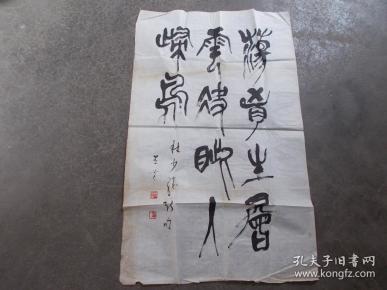 蕩胷生層
雲決眥入
歸鳥
杜少陵
孔夫子旧书网
www.kongfz.com